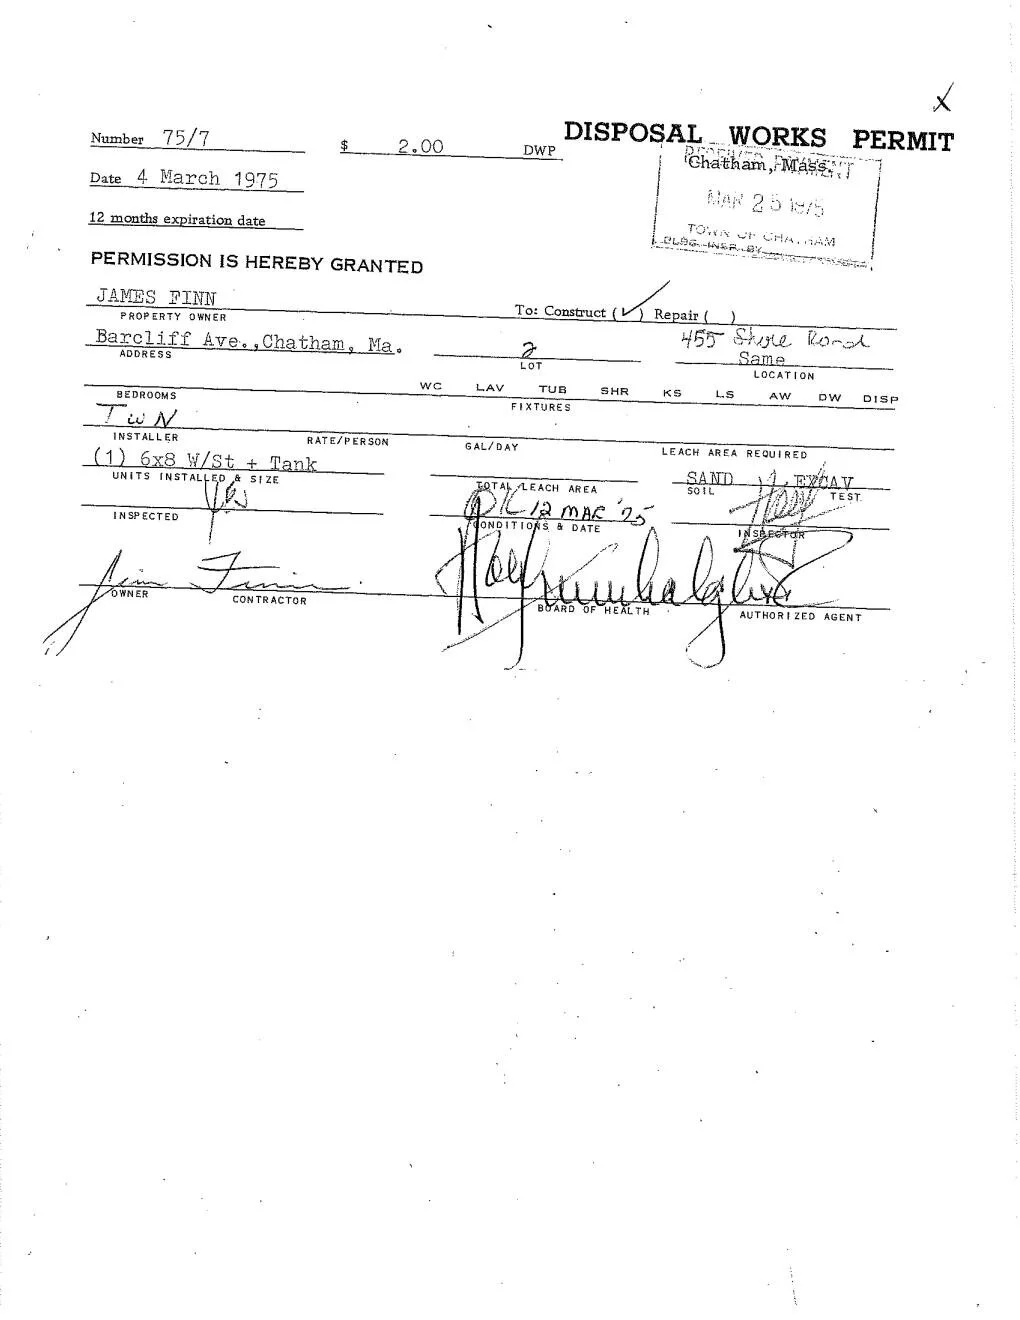 X
Number 75/7 $ 2.00 DWP DISPOSAL WORKS PERMIT
Chatham, Mass.
Date 4 March 1975
MAR 25 1975
12 months expiration date
TOWN OF CHATHAM
BLDG. INSP. BY
PERMISSION IS HEREBY GRANTED
JAMES FINN To: Construct (✓) Repair ( )
PROPERTY OWNER
455 Shore Road
Barcliff Ave.,Chatham, Ma. 2 Same
ADDRESS LOT LOCATION
WC LAV TUB SHR KS LS AW DW DISP
BEDROOMS FIXTURES
T w N
INSTALLER RATE/PERSON GAL/DAY LEACH AREA REQUIRED
(1) 6x8 W/St + Tank SAND EXCAV
UNITS INSTALLED & SIZE TOTAL LEACH AREA SOIL TEST
OK 12 MAR '75
INSPECTED CONDITIONS & DATE INSPECTOR
Jim Finn
OWNER CONTRACTOR BOARD OF HEALTH AUTHORIZED AGENT